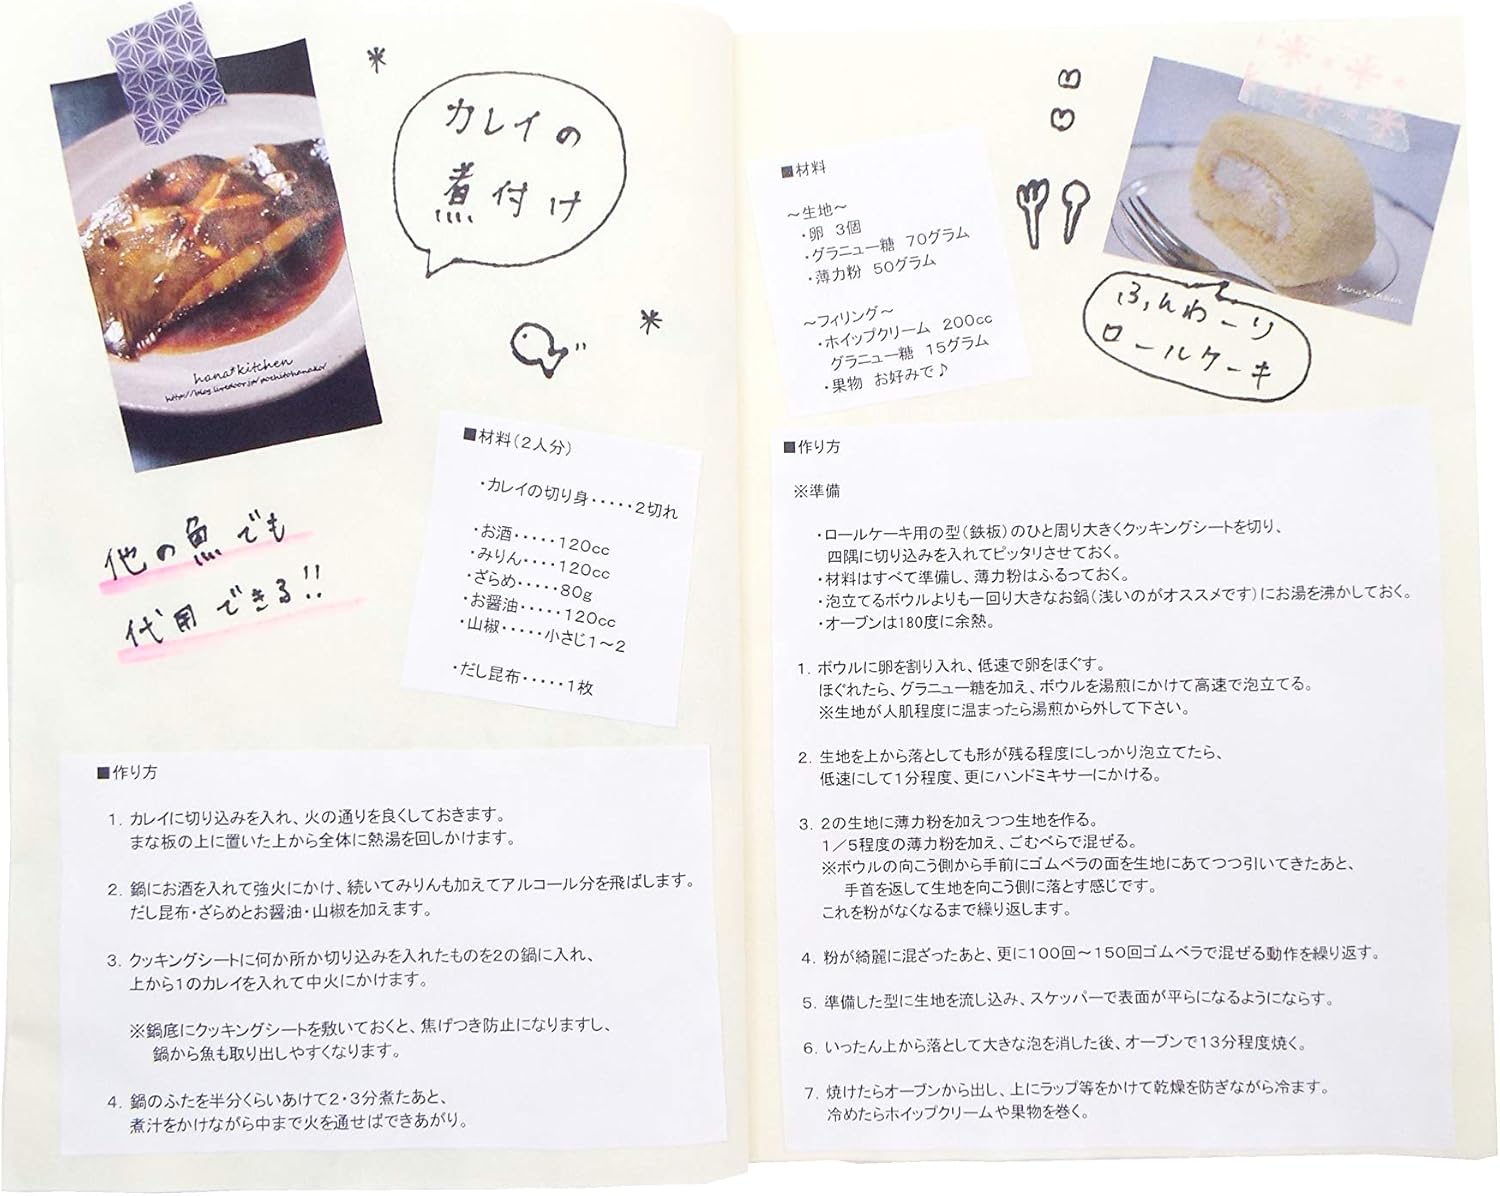 カレイの
煮付け
hana*kitchen
http://blog.livedoor.jp/pochitohanako/
■材料(2人分)
・カレイの切り身・・・・・2切れ
・お酒・・・・・120cc
・みりん・・・・120cc
・ざらめ・・・・・80g
・お醤油・・・・・120cc
・山椒・・・・・小さじ1~2
・だし昆布・・・・・1枚
他の魚でも
代用できる!!
■作り方
1. カレイに切り込みを入れ、火の通りを良くしておきます。
まな板の上に置いた上から全体に熱湯を回しかけます。
2. 鍋にお酒を入れて強火にかけ、続いてみりんも加えてアルコール分を飛ばします。
だし昆布・ざらめとお醤油・山椒を加えます。
3. クッキングシートに何か所か切り込みを入れたものを2の鍋に入れ、
上から1のカレイを入れて中火にかけます。
※鍋底にクッキングシートを敷いておくと、焦げつき防止になりますし、
鍋から魚も取り出しやすくなります。
4. 鍋のふたを半分くらいあけて2・3分煮たあと、
煮汁をかけながら中まで火を通せばできあがり。
■材料
~生地~
・卵 3個
・グラニュー糖 70グラム
・薄力粉 50グラム
~フィリング~
・ホイップクリーム 200cc
グラニュー糖 15グラム
・果物 お好みで♪
hana*kitchen
ふんわーり
ロールケーキ
■作り方
※準備
・ロールケーキ用の型(鉄板)のひと周り大きくクッキングシートを切り、
四隅に切り込みを入れてピッタリさせておく。
・材料はすべて準備し、薄力粉はふるっておく。
・泡立てるボウルよりも一回り大きなお鍋(浅いのがオススメです)にお湯を沸かしておく。
・オーブンは180度に余熱。
1. ボウルに卵を割り入れ、低速で卵をほぐす。
ほぐれたら、グラニュー糖を加え、ボウルを湯煎にかけて高速で泡立てる。
※生地が人肌程度に温まったら湯煎から外して下さい。
2. 生地を上から落としても形が残る程度にしっかり泡立てたら、
低速にして1分程度、更にハンドミキサーにかける。
3. 2の生地に薄力粉を加えつつ生地を作る。
1/5程度の薄力粉を加え、ごむべらで混ぜる。
※ボウルの向こう側から手前にゴムベラの面を生地にあてつつ引いてきたあと、
手首を返して生地を向こう側に落とす感じです。
これを粉がなくなるまで繰り返します。
4. 粉が綺麗に混ざったあと、更に100回~150回ゴムベラで混ぜる動作を繰り返す。
5. 準備した型に生地を流し込み、スケッパーで表面が平らになるようにならす。
6. いったん上から落として大きな泡を消した後、オーブンで13分程度焼く。
7. 焼けたらオーブンから出し、上にラップ等をかけて乾燥を防ぎながら冷ます。
冷めたらホイップクリームや果物を巻く。